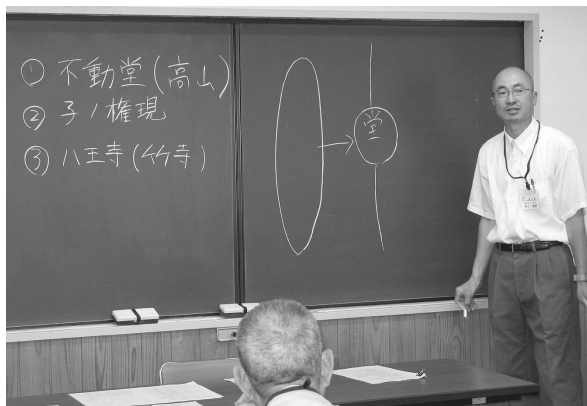 ① 不動堂(高山)
② 子ノ権現
③ 八王寺(竹寺)
堂